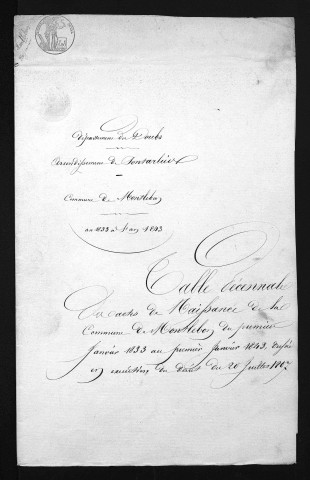 Département du Doubs
Arrondissement de Pontarlier
Commune de Montlebon
an 1833 à l'an 1843
Table décennale
Des actes de Naissance de la
Commune de Montlebon du premier
Janvier 1833 au premier Janvier 1843. Dressée
en exécution du décret du 20 Juillet 1807